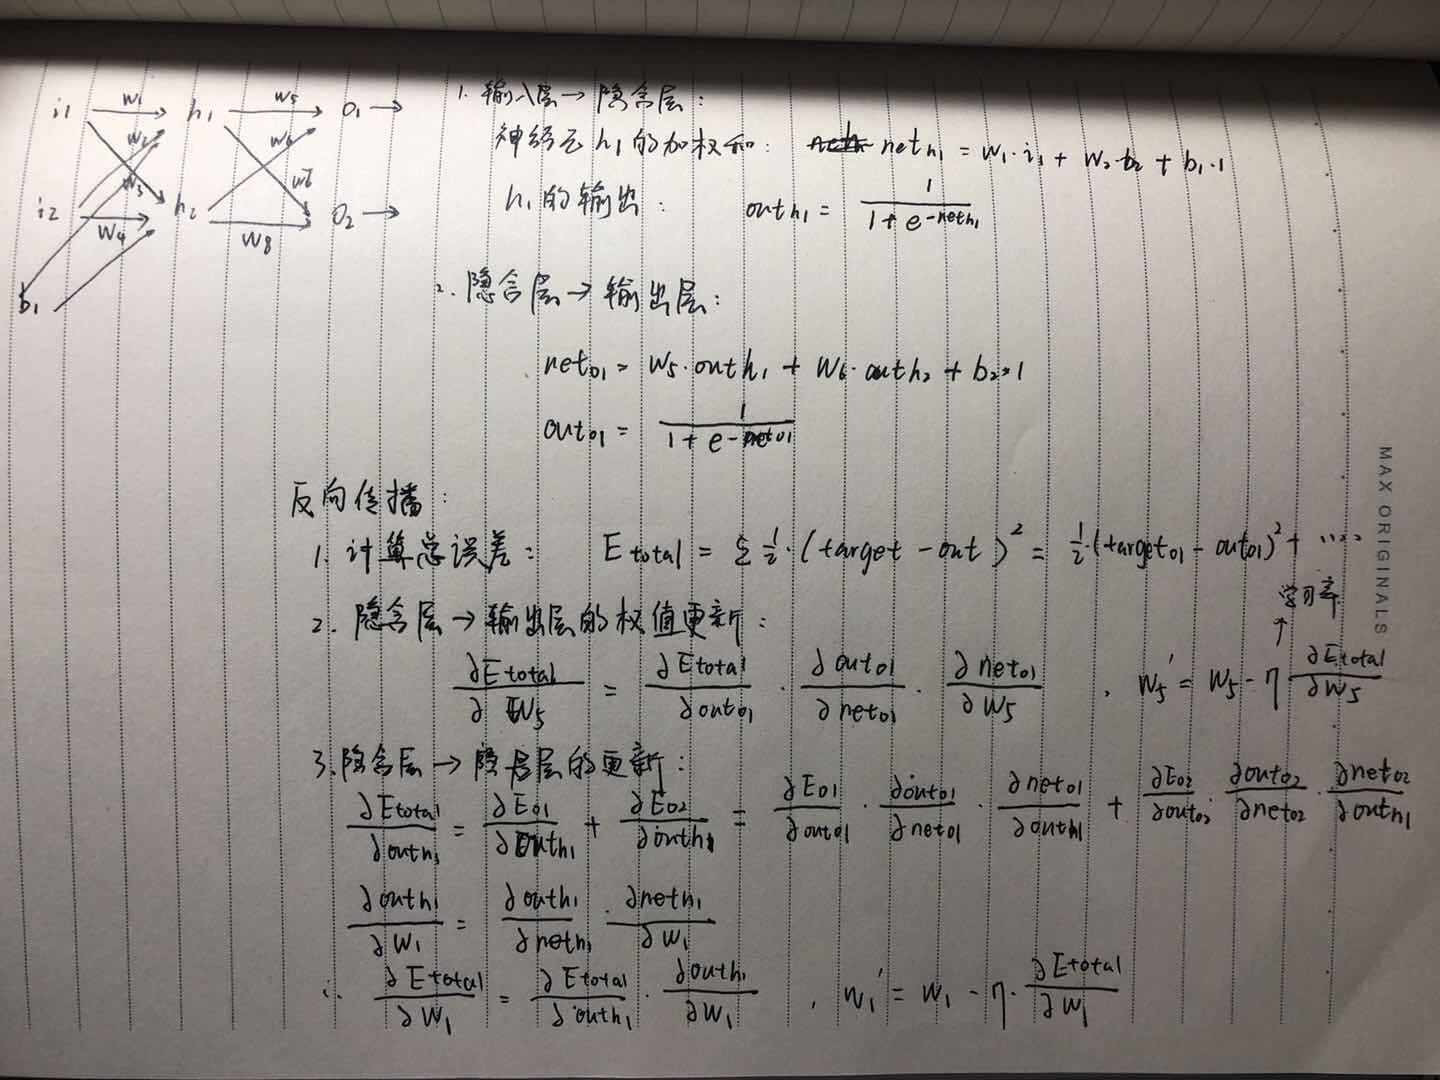 i1 w1 h1 w5 o1
w2 w6
w3 w7
i2 w4 h2 w8 o2
b1
1. 输入层→隐含层：
神经元h1的加权和： net_h1 = w1·i1 + w2·i2 + b1·1
h1的输出： out_h1 = 1 / (1 + e^-net_h1)
2. 隐含层→输出层：
net_o1 = w5·out_h1 + w6·out_h2 + b2·1
out_o1 = 1 / (1 + e^-net_o1)
反向传播：
1. 计算总误差： E total = Σ 1/2·(target - out)² = 1/2·(target_o1 - out_o1)² + ·····
2. 隐含层→输出层的权值更新：
学习率
∂E total / ∂w5 = ∂E total / ∂out_o1 · ∂out_o1 / ∂net_o1 · ∂net_o1 / ∂w5 , w5' = w5 - η ∂E total / ∂w5
3. 隐含层→隐含层的更新：
∂E total / ∂out_h1 = ∂E_o1 / ∂out_h1 + ∂E_o2 / ∂out_h1 = ∂E_o1 / ∂out_o1 · ∂out_o1 / ∂net_o1 · ∂net_o1 / ∂out_h1 + ∂E_o2 / ∂out_o2 · ∂out_o2 / ∂net_o2 · ∂net_o2 / ∂out_h1
∂out_h1 / ∂w1 = ∂out_h1 / ∂net_h1 · ∂net_h1 / ∂w1
∴ ∂E total / ∂w1 = ∂E total / ∂out_h1 · ∂out_h1 / ∂w1 , w1' = w1 - η·∂E total / ∂w1
MAX ORIGINALS